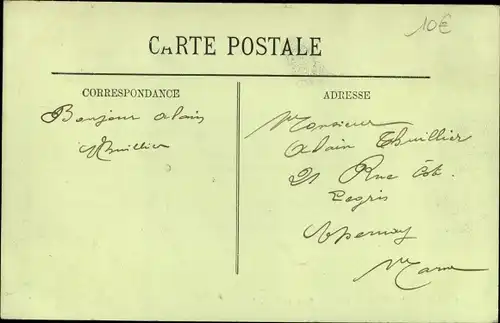 10€
CARTE POSTALE
CORRESPONDANCE
Bonjour Alain
Thuillier
ADRESSE
Monsieur
Alain Thuillier
21 Rue Côt.
Legris
Epernay
Marne